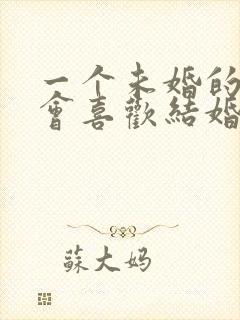 一个未婚的
會喜歡結婚
蘇大妈